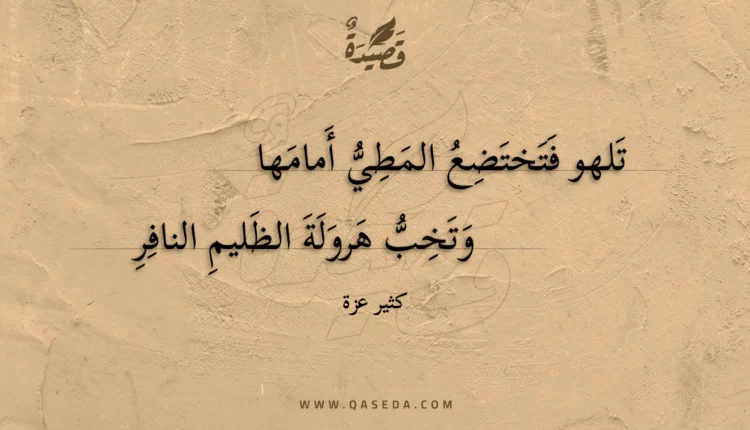 قَصِيدَةٌ
تَلهو فَتَختَضِعُ المَطِيُّ أَمامَها
وَتَخِبُّ هَروَلَةَ الظَليمِ النافِرِ
كثير عزة
WWW.QASEDA.COM